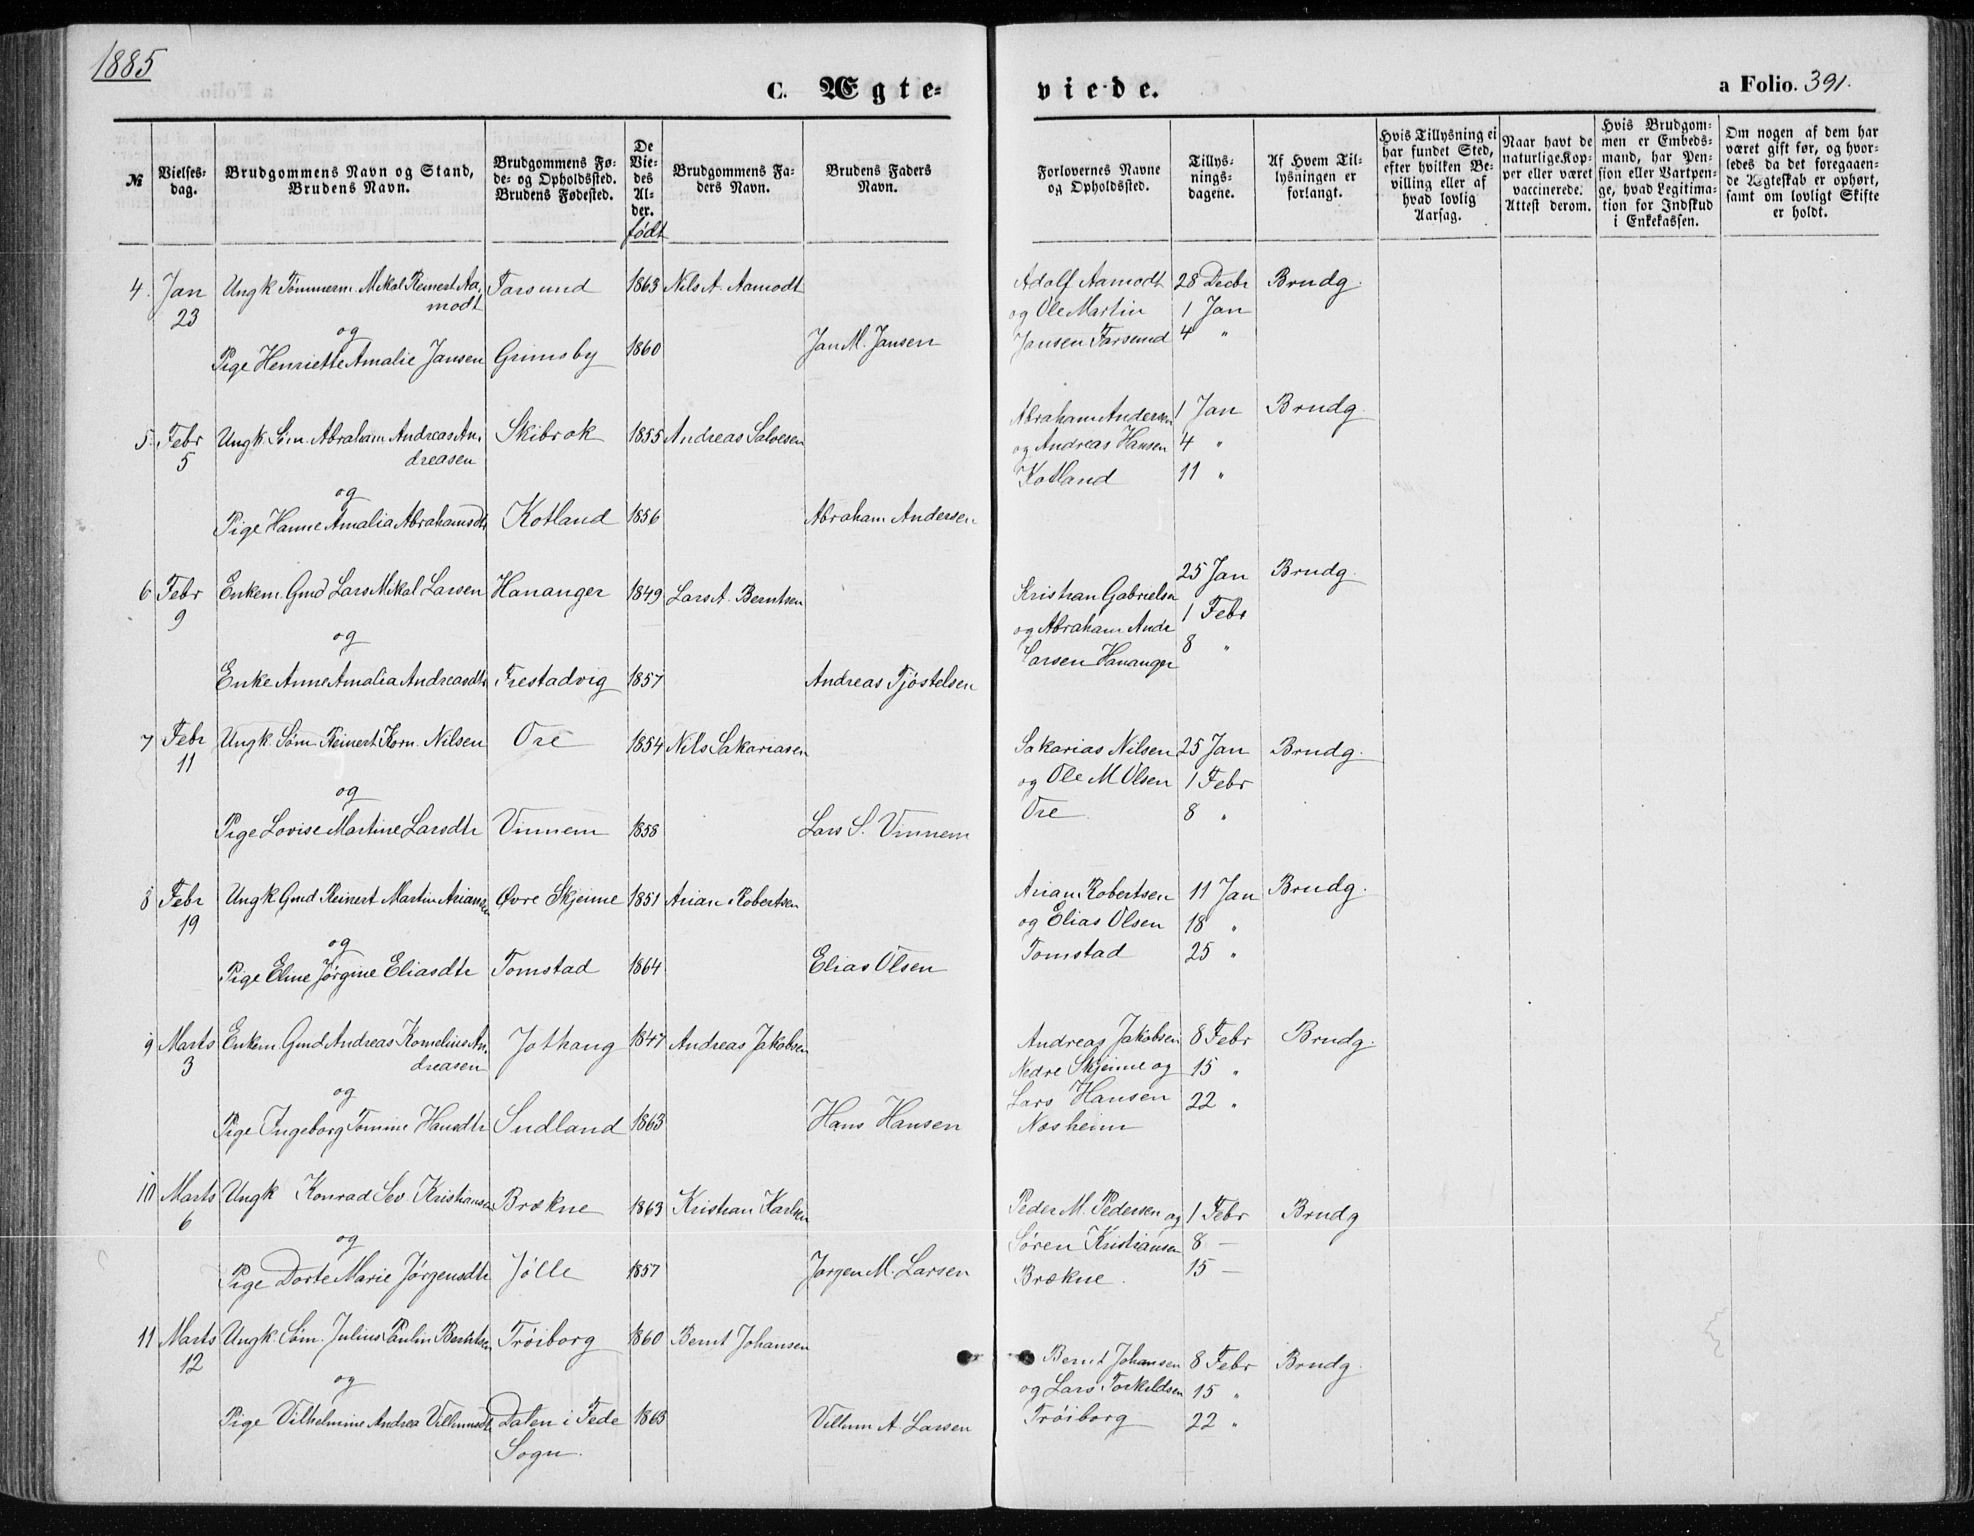 1885
C. Ægte=
viede.
a Folio. 391.
№
Vielses-
dag.
Brudgommens Navn og Stand,
Brudens Navn.
Brudgommens Fø-
de- og Opholdssted.
Brudens Fødested.
De
Vie-
des
Al-
der.
født
Brudgommens Fa-
ders Navn.
Brudens Faders
Navn.
Forlovernes Navne
og Opholdssted.
Tillys-
nings-
dagene.
Af Hvem Til-
lysningen er
forlangt.
Hvis Tillysning ei
har fundet Sted,
efter hvilken Be-
villing eller af
hvad lovlig
Aarsag.
Naar havt de
naturlige Kop-
per eller været
vaccinerede.
Attest derom.
Hvis Brudgom-
men er Embeds-
mand, har Pen-
sion eller Vartpen-
ge, hvad Legitima-
tion for Indskud
i Enkekassen.
Om nogen af dem har
været gift før, og hvor-
ledes da det foregaaen-
de Ægteskab er ophørt,
samt om lovligt Skifte
er holdt.
4. Jan Ungk Tømmerm. Mikal Reinert Aa- Farsund 1863 Nils A. Aamodt Adolf Aamodt 28 Decbr Brudg.
23 modt og Ole Martin 1 Jan
og Jansen Farsund 4 "
Pige Henriette Amalie Jansen Grimsby 1860 Jan M. Jansen
5. Febr Ungk. Søm. Abraham Andreas An- Skibrok 1855 Andreas Salvesen Abraham Andersen 1 Jan Brudg
5 dreasen og Andreas Hansen 4 "
og Kotland 11 "
Pige Hanne Amalia Abrahamsdtr Kotland 1856 Abraham Andersen
6 Febr Enkem. Gmd Lars Mikal Larsen Hananger 1849 Lars A. Berntsen Kristian Gabrielsen 25 Jan Brudg.
9 og og Abraham Andr 1 Febr
Larsen Hananger 8 "
Enke Anne Amalia Andreasdtr Frestadvig 1857 Andreas Tjøstelsen
7 Febr Ungk. Søm Reinert Korn. Nilsen Ore 1854 Nils Sakariasen Sakarias Nilsen 25 Jan Brudg.
11 og Ole M Olsen 1 Febr
og Ore 8 "
Pige Lovise Martine Larsdtr Vinnem 1858 Lars S. Vinnem
8 Febr Ungk Gmd Reinert Martin Ariansen Øvre Skjeime 1851 Arian Robertsen Arian Robertsen 11 Jan Brudg.
19 og Elias Olsen 18 "
og Tomstad 25 "
Pige Eline Jørgine Eliasdtr Tomstad 1864 Elias Olsen
9 Marts Enkem. Gmd Andreas Kornelius An- Jothang 1847 Andreas Jakobsen Andreas Jakobsen 8 Febr Brudg.
3 dreasen Nedre Skjeime og 15 "
og Lars Hansen 22 "
Pige Ingeborg Tomine Hansdtr Sudland 1863 Hans Hansen Nesheim
10 Marts Ungk Konrad Sev. Kristiansen Brekne 1863 Kristian Karlsen Peder M. Pedersen og 1 Febr Brudg
6 og Søren Kristiansen 8 -
Pige Dorte Marie Jørgensdtr Jølle 1857 Jørgen M. Larsen Brekne. 15 -
11 Marts Ungk Søm. Julius Paulin Berntsen Trøiborg 1860 Bernt Johansen Bernt Johansen 8 Febr Brudg.
12 og Lars Torkildsen 15 "
og Trøiborg 22 "
Pige Vilhelmine Andrea Villumsdtr Dalen i Fede 1863 Villum A. Larsen
Sogn.